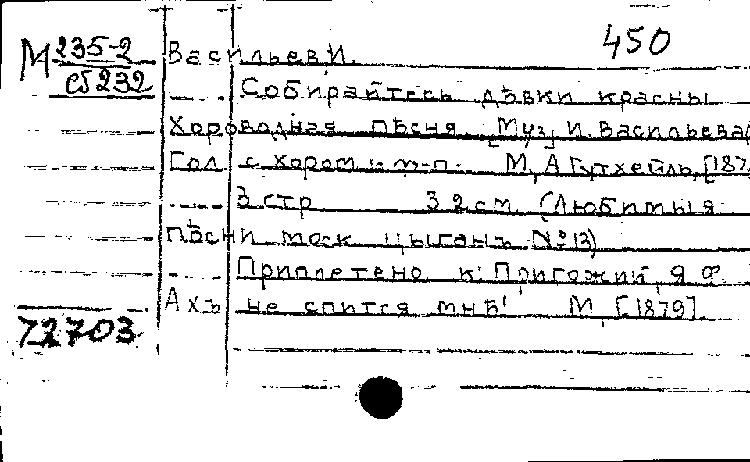 450
М 235-2
сб 232
Васильев, И.
Собирайтесь дѣвки красны
Хороводная пѣсня. [Муз.] И. Васильева
Гол. с хором и ф-п. М., А. Гутхейль, [187
3 стр. 32 см. (Любимыя
пѣсни моск. цыганъ №13)
Приплетено к: Пригожий, Я. Ф.
Ахъ не спится мнѣ! М., [1879].
72703